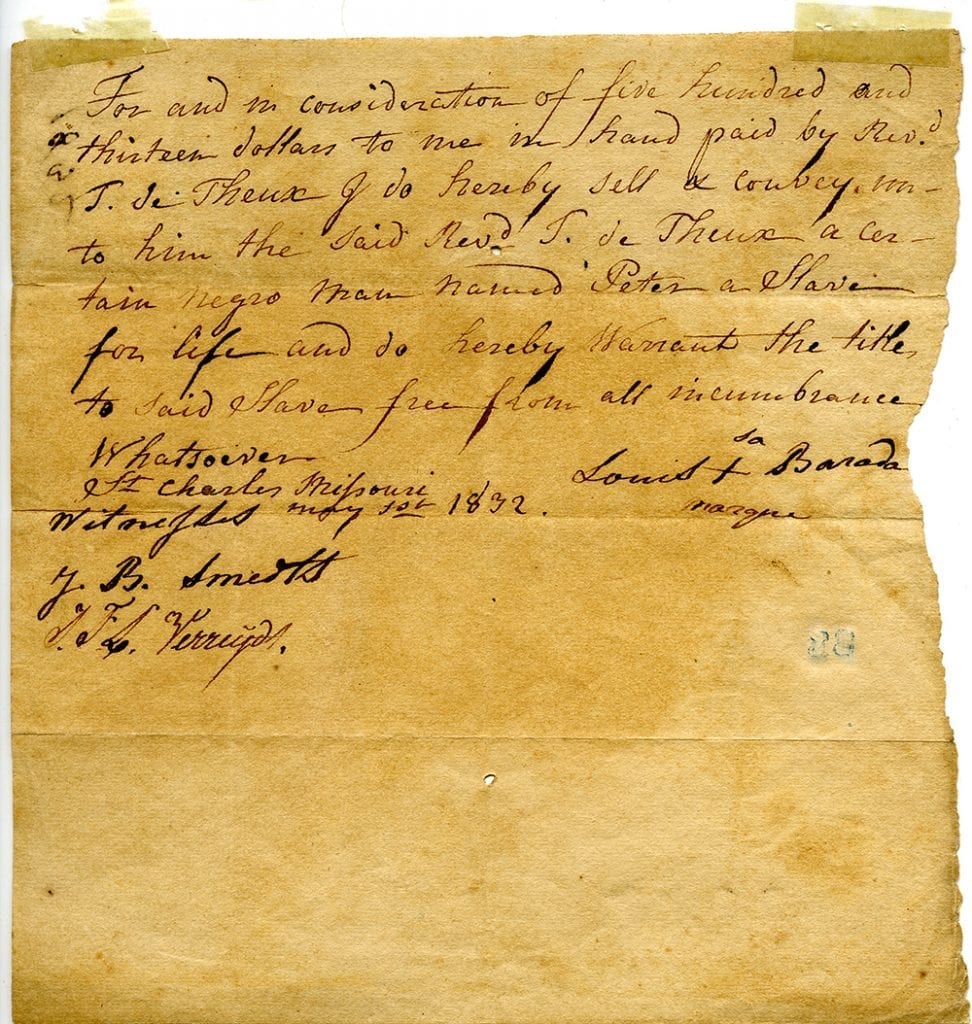 For and in consideration of five hundred and
thirteen dollars to me in hand paid by Rev.d
T. de Theux I do hereby sell & convey un-
to him the said Rev.d T. de Theux a cer-
tain negro man named Peter a Slave
for life and do hereby Warrant the title
to said Slave free from all incumbrance
Whatsoever
sa
Louis + Barada
marque
St Charles Missouri
Witnesses may 1st 1832.
J. B. Smedts
J. F. L. Verreydt.